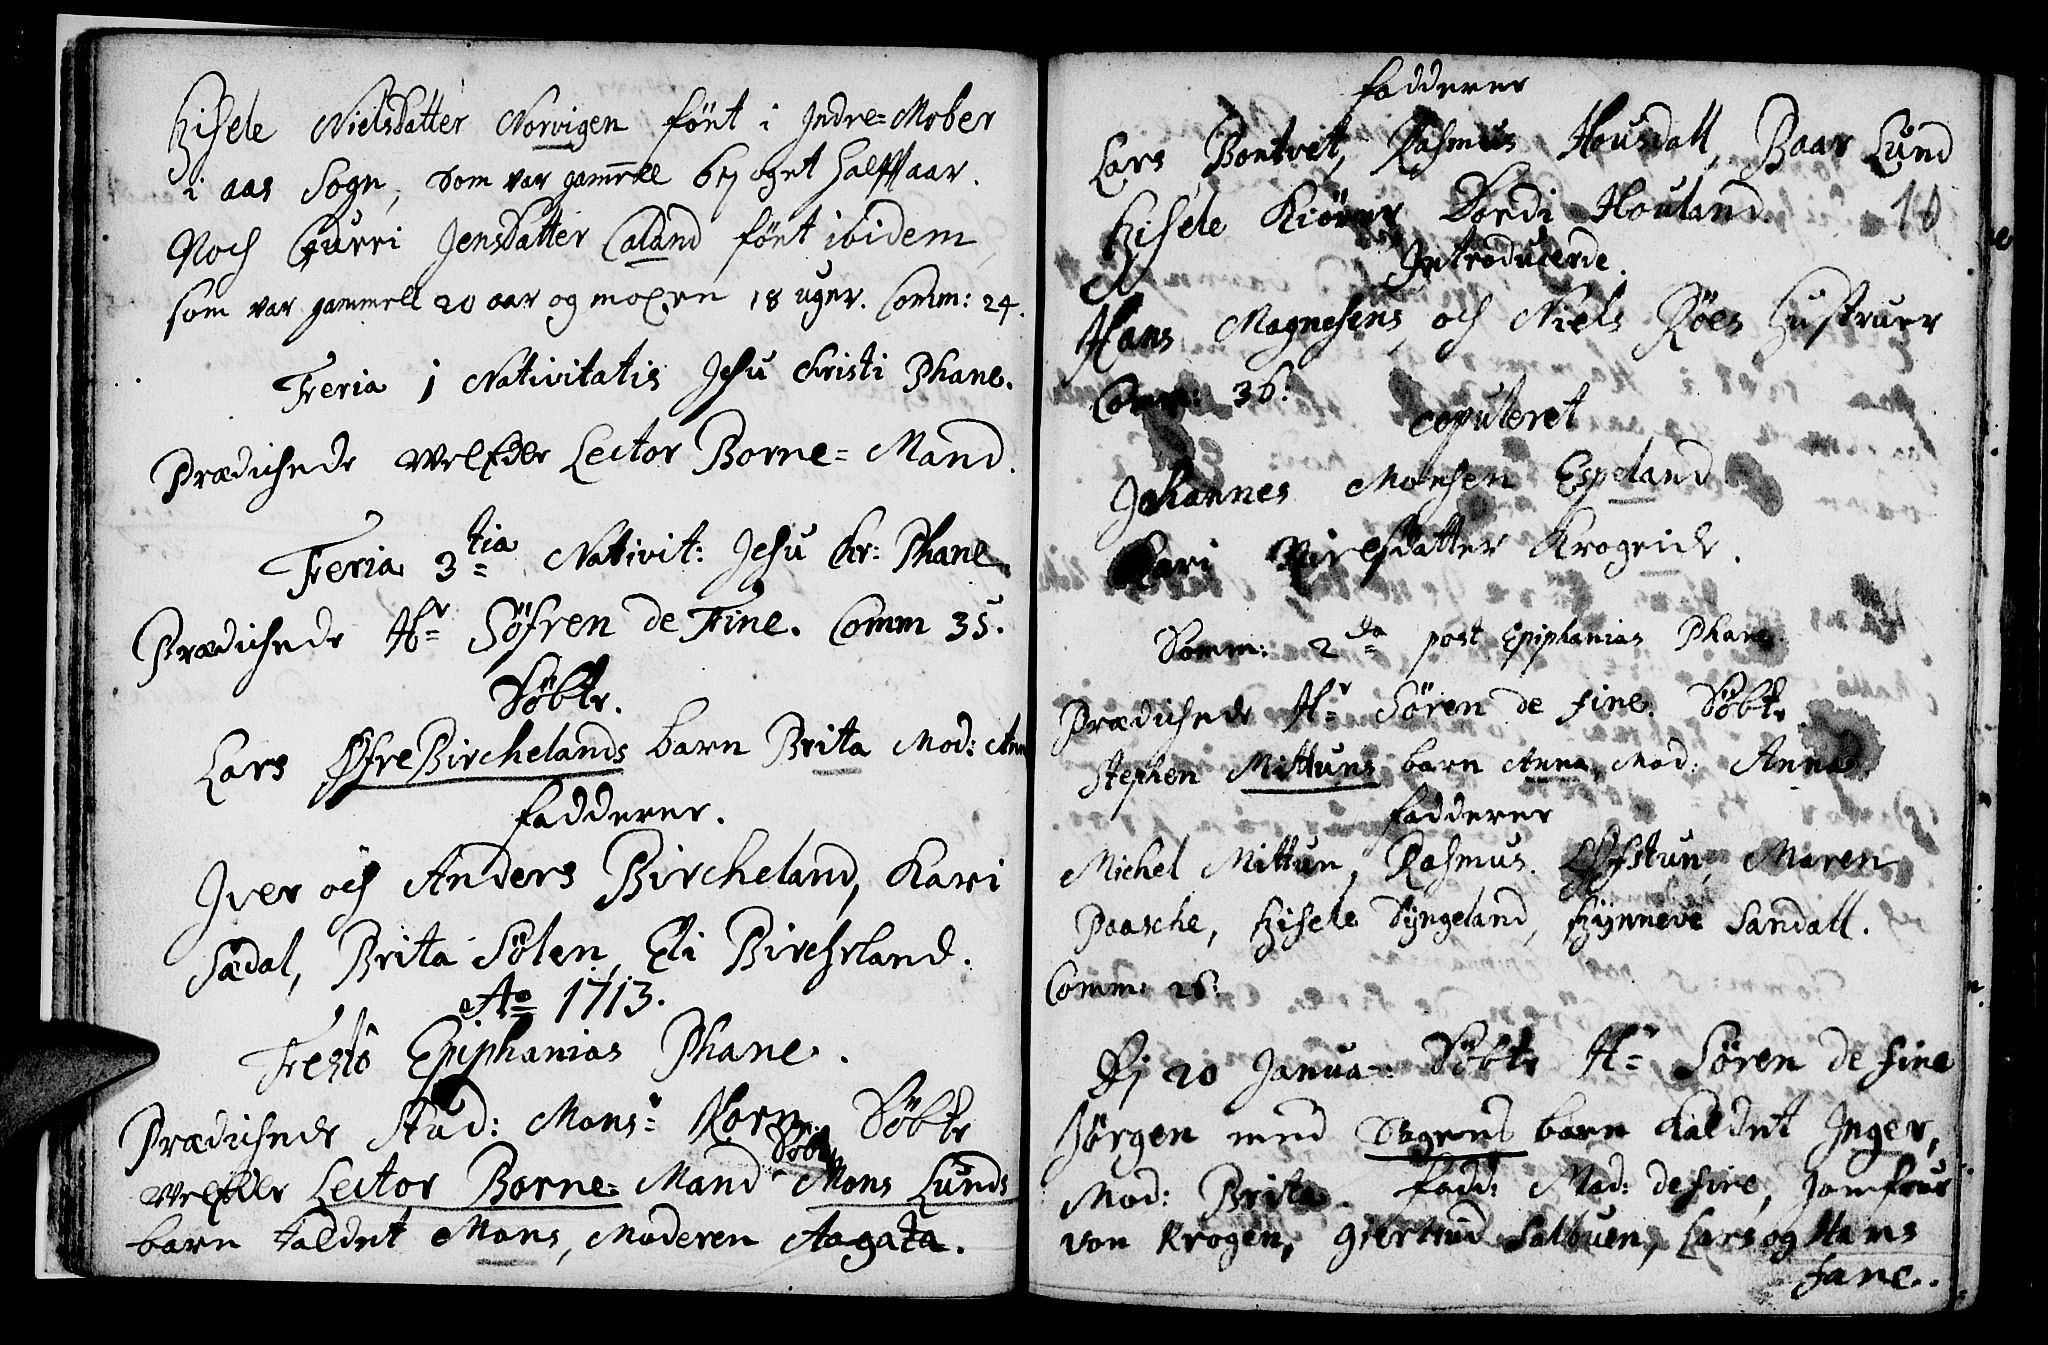 Zisele Nielsdatter Norvigen fönt i Indre-Mober
i aas Sogn, Som var gamell 6 og et halfft aar.
Noch Gurri Jensdatter Caland fönt ibidem,
som var gammell 20 aar og 18 uger. Comm: 24.
Feria 1 Nativitatis Jesu Christi Phane.
Prædichede Welædle Lector Borne=Mand.
Feria 3tia Nativit: Jesu Chr: Phane.
Prædichede Hr Söfren de Fine. Comm 35.
Döbte.
Lars ØfreBirchelands barn Brita Mod: Ann
fadderer.
Iver och Anders Bircheland, Kari
Sædal, Brita Sölen, Eli Bircheland.
Ao 1713.
Festo Epiphanias Phane.
Prædichede Stud: Monsr Korne. Döbte
Welædle Lector Borne=Mand Mons Lunds
barn kaldet Mons, Moderen Aagata.
fadderer
Lars Bontvet, Rasmus Housdall, Baar Lund
Zisele Kiörner Dordi Houland. 10
Introducerde.
Hans Magnesens och Niels Röes Hustruer
Comm: 36.
copuleret
Johannes Monsen Espeland
Kari Nielsdatter Krogeide.
Domm: 2da post Epiphanias Phane.
Prædichede Hr Sören de fine. Döbte
Stephen Mittuns barn Anna, Mod: Anna
fadderer
Michel Mittun, Rasmus Øfstun, Maren
Paasche, Zisele Dyngeland, Zynneve Sandall.
Comm: 26.
D 20 Janua: Döbte Hr Sören de fine
Jörgen med barn kaldet Inger,
Mod: Brita. fadd: Mad: de fine, Jomfrue
von Krogen, Giertrud Salbuen, Lars og Hans
fane.